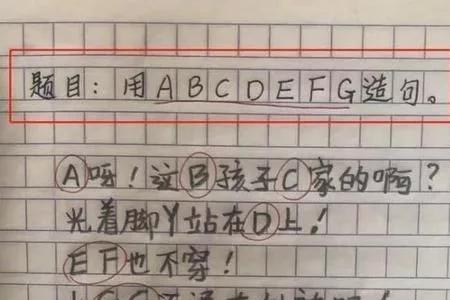 题目：用ABCDEFG造句。
A呀！这B孩子C家的啊？
光着脚Y站在D上！
EF也不穿！